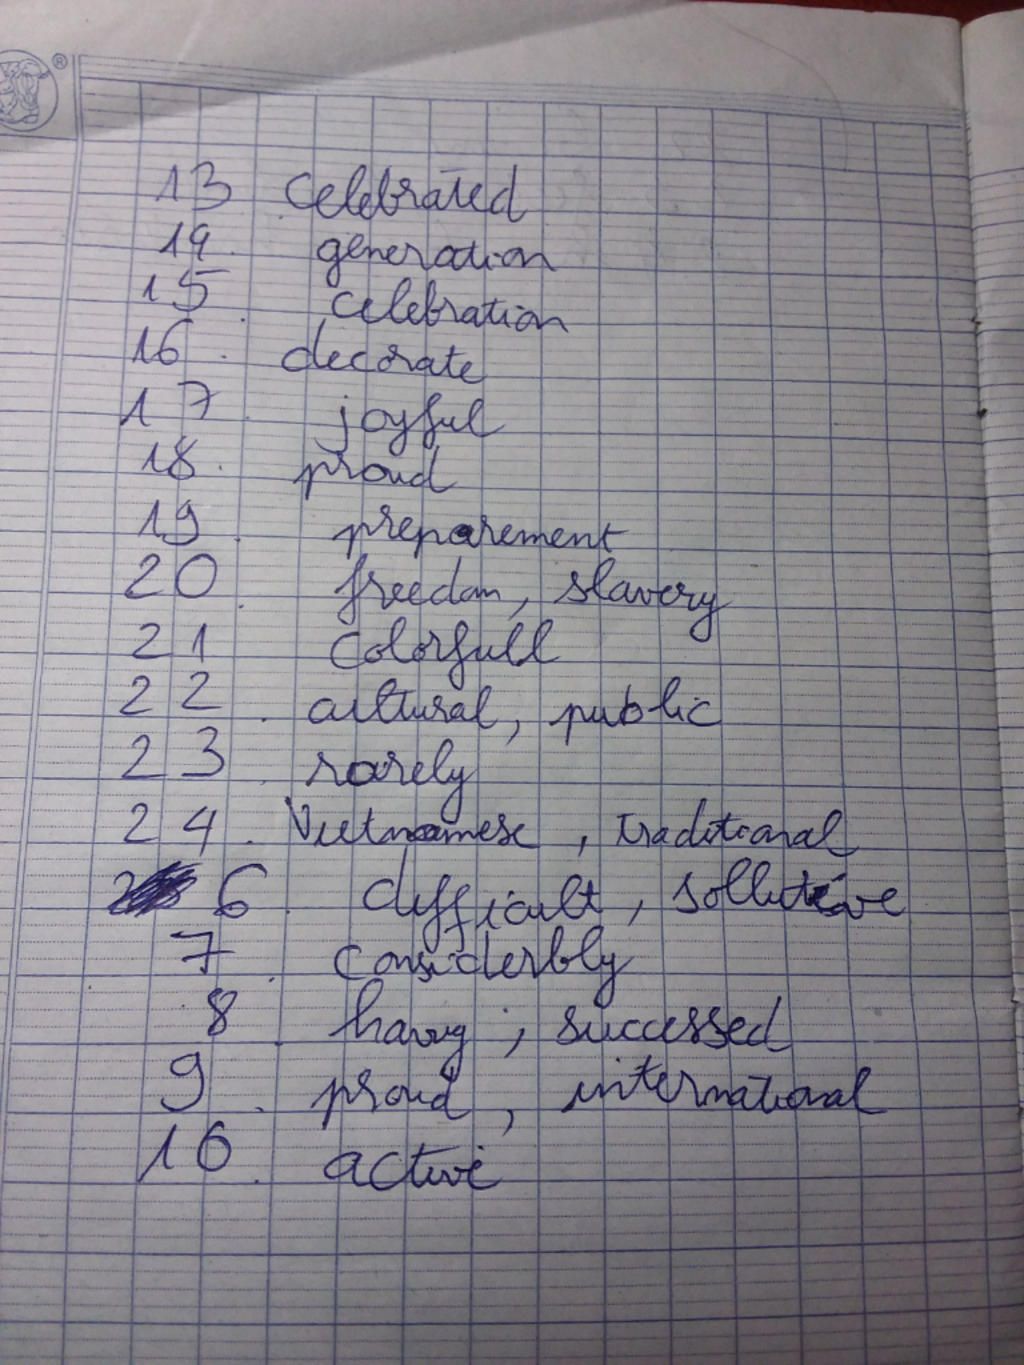 13 Celebrated
14. generation
15. celebration
16. decorate
17. joyful
18. proud
19. preparement
20. freedom, slavery
21 colorfull
22. cultural, public
23. rarely
24. Vietnamese, traditional
6. difficult, sollutive
7. considerbly
8. having; successed
9. proud, international
10. active